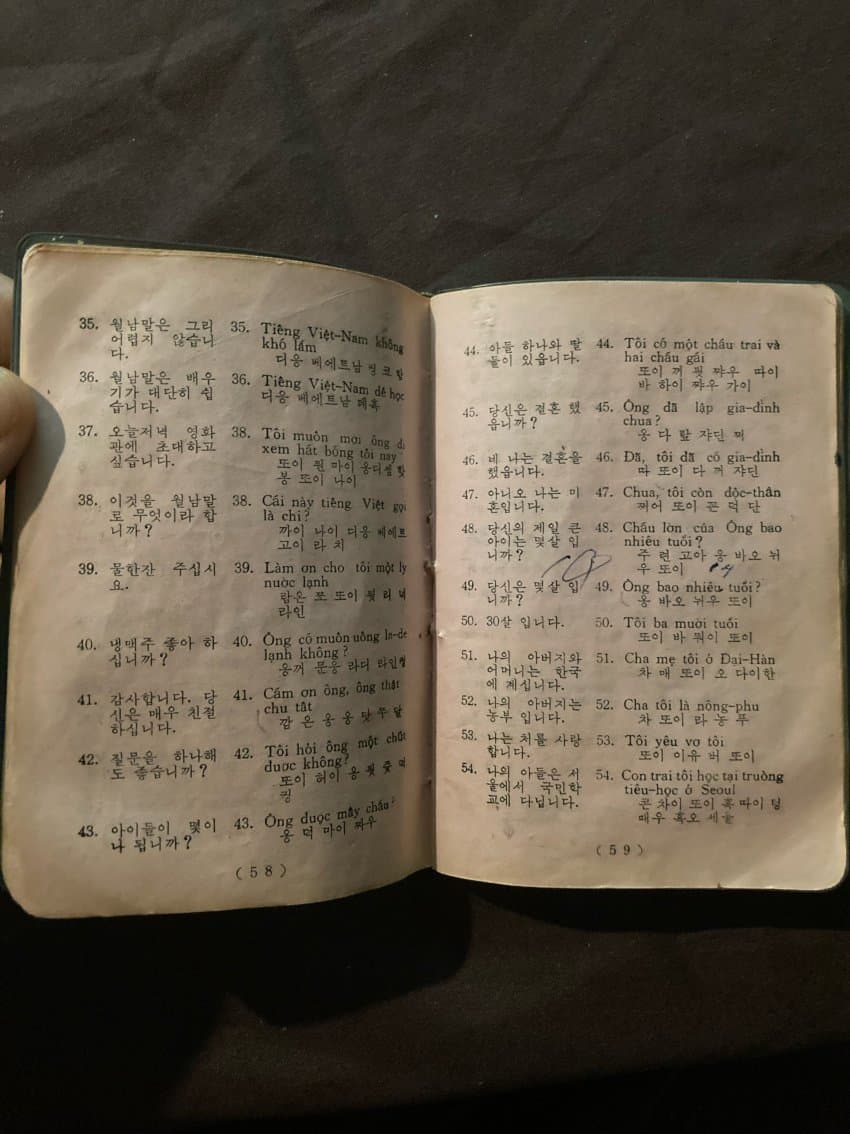 35. 월남말은 그리
어렵지 않습니
다.
36. 월남말은 배우
기가 대단히 쉽
습니다.
37. 오늘저녁 영화
관에 초대하고
싶습니다.
38. 이것을 월남말
로 무엇이라 합
니까?
39. 물한잔 주십시
요.
40. 냉맥주 좋아 하
십니까?
41. 감사합니다. 당
신은 매우 친절
하십니다.
42. 질문을 하나해
도 좋습니까?
43. 아이들이 몇이
나 됩니까?
35. Tiếng Việt-Nam không
khó lắm
디옹 베에트남 콩 코 람
36. Tiếng Việt-Nam dê học
디옹 베에트남 데흑
38. Tôi muôn mơi ông đi
xem hát bông tôi này
또이 뭔 마이 옹디셈 핫
봉 또이 나이
38. Cái này tiêng Việt gọi
là chi?
까이 나이 디옹 베에트
고이 라 치
39. Làm ơn cho tôi một ly
nuòc lạnh
람온 쪼 또이 뭣 리 넉
라인
40. Ông có muôn uông la-de
lạnh không?
옹꺼 문웅 라더 라인
41. Cấm ơn ông, ông thật
chu tât
깜 은 옹 옹 닷 쭈 달
42. Tôi hỏi ông một chút
duoc không?
또이 허이 옹 뭣 줏 떡
킹
43. Ông duọc mây châu?
옹 덕 마이 짜우
( 5 8 )
44. 아들 하나와 딸
둘이 있읍니다.
45. 당신은 결혼 했
읍니까?
46. 네 나는 결혼을
했읍니다.
47. 아니오 나는 미
혼입니다.
48. 당신의 제일 큰
아이는 몇살 입
니까?
49. 당신은 몇살 입
니까?
50. 30살 입니다.
51. 나의 아버지와
어머니는 한국
에 계십니다.
52. 나의 아버지는
농부 입니다.
53. 나는 처를 사랑
합니다.
54. 나의 아들은 서
울에서 국민학
교에 다닙니다.
44. Tôi cố một chấu trai và
hai chấu gái
또이 꺼 뭣 쨔우 따이
바 하이 쨔우 가이
45. Ông dã lập gia-dình
chua?
옹 다 랖 쟈딘 쩌
46. Đã, tôi dã có gia-dình
따 또이 다 꺼 쟈딘
47. Chua, tôi còn dộc-thân
쩌어 또이 꼰 덕 단
48. Chấu lờn của Ông bao
nhiêu tuổi?
주 런 고아 옹 바오 뉘
우 또이
49. Ông bao nhiêu tuổi?
옹 바오 뉘우 또이
50. Tôi ba mười tuổi
또이 바 뭐이 또이
51. Cha mẹ tôi ở Đại-Hàn
차 매 또이 오 다이한
52. Cha tôi là nông-phu
차 또이 라 농 푸
53. Tôi yêu vợ tôi
또이 이유 버 또이
54. Con trai tôi học tại truòng
tiêu-học ở Seoul
꼰 차이 또이 흑 따이 텅
때우 흑오 세울
( 5 9 )